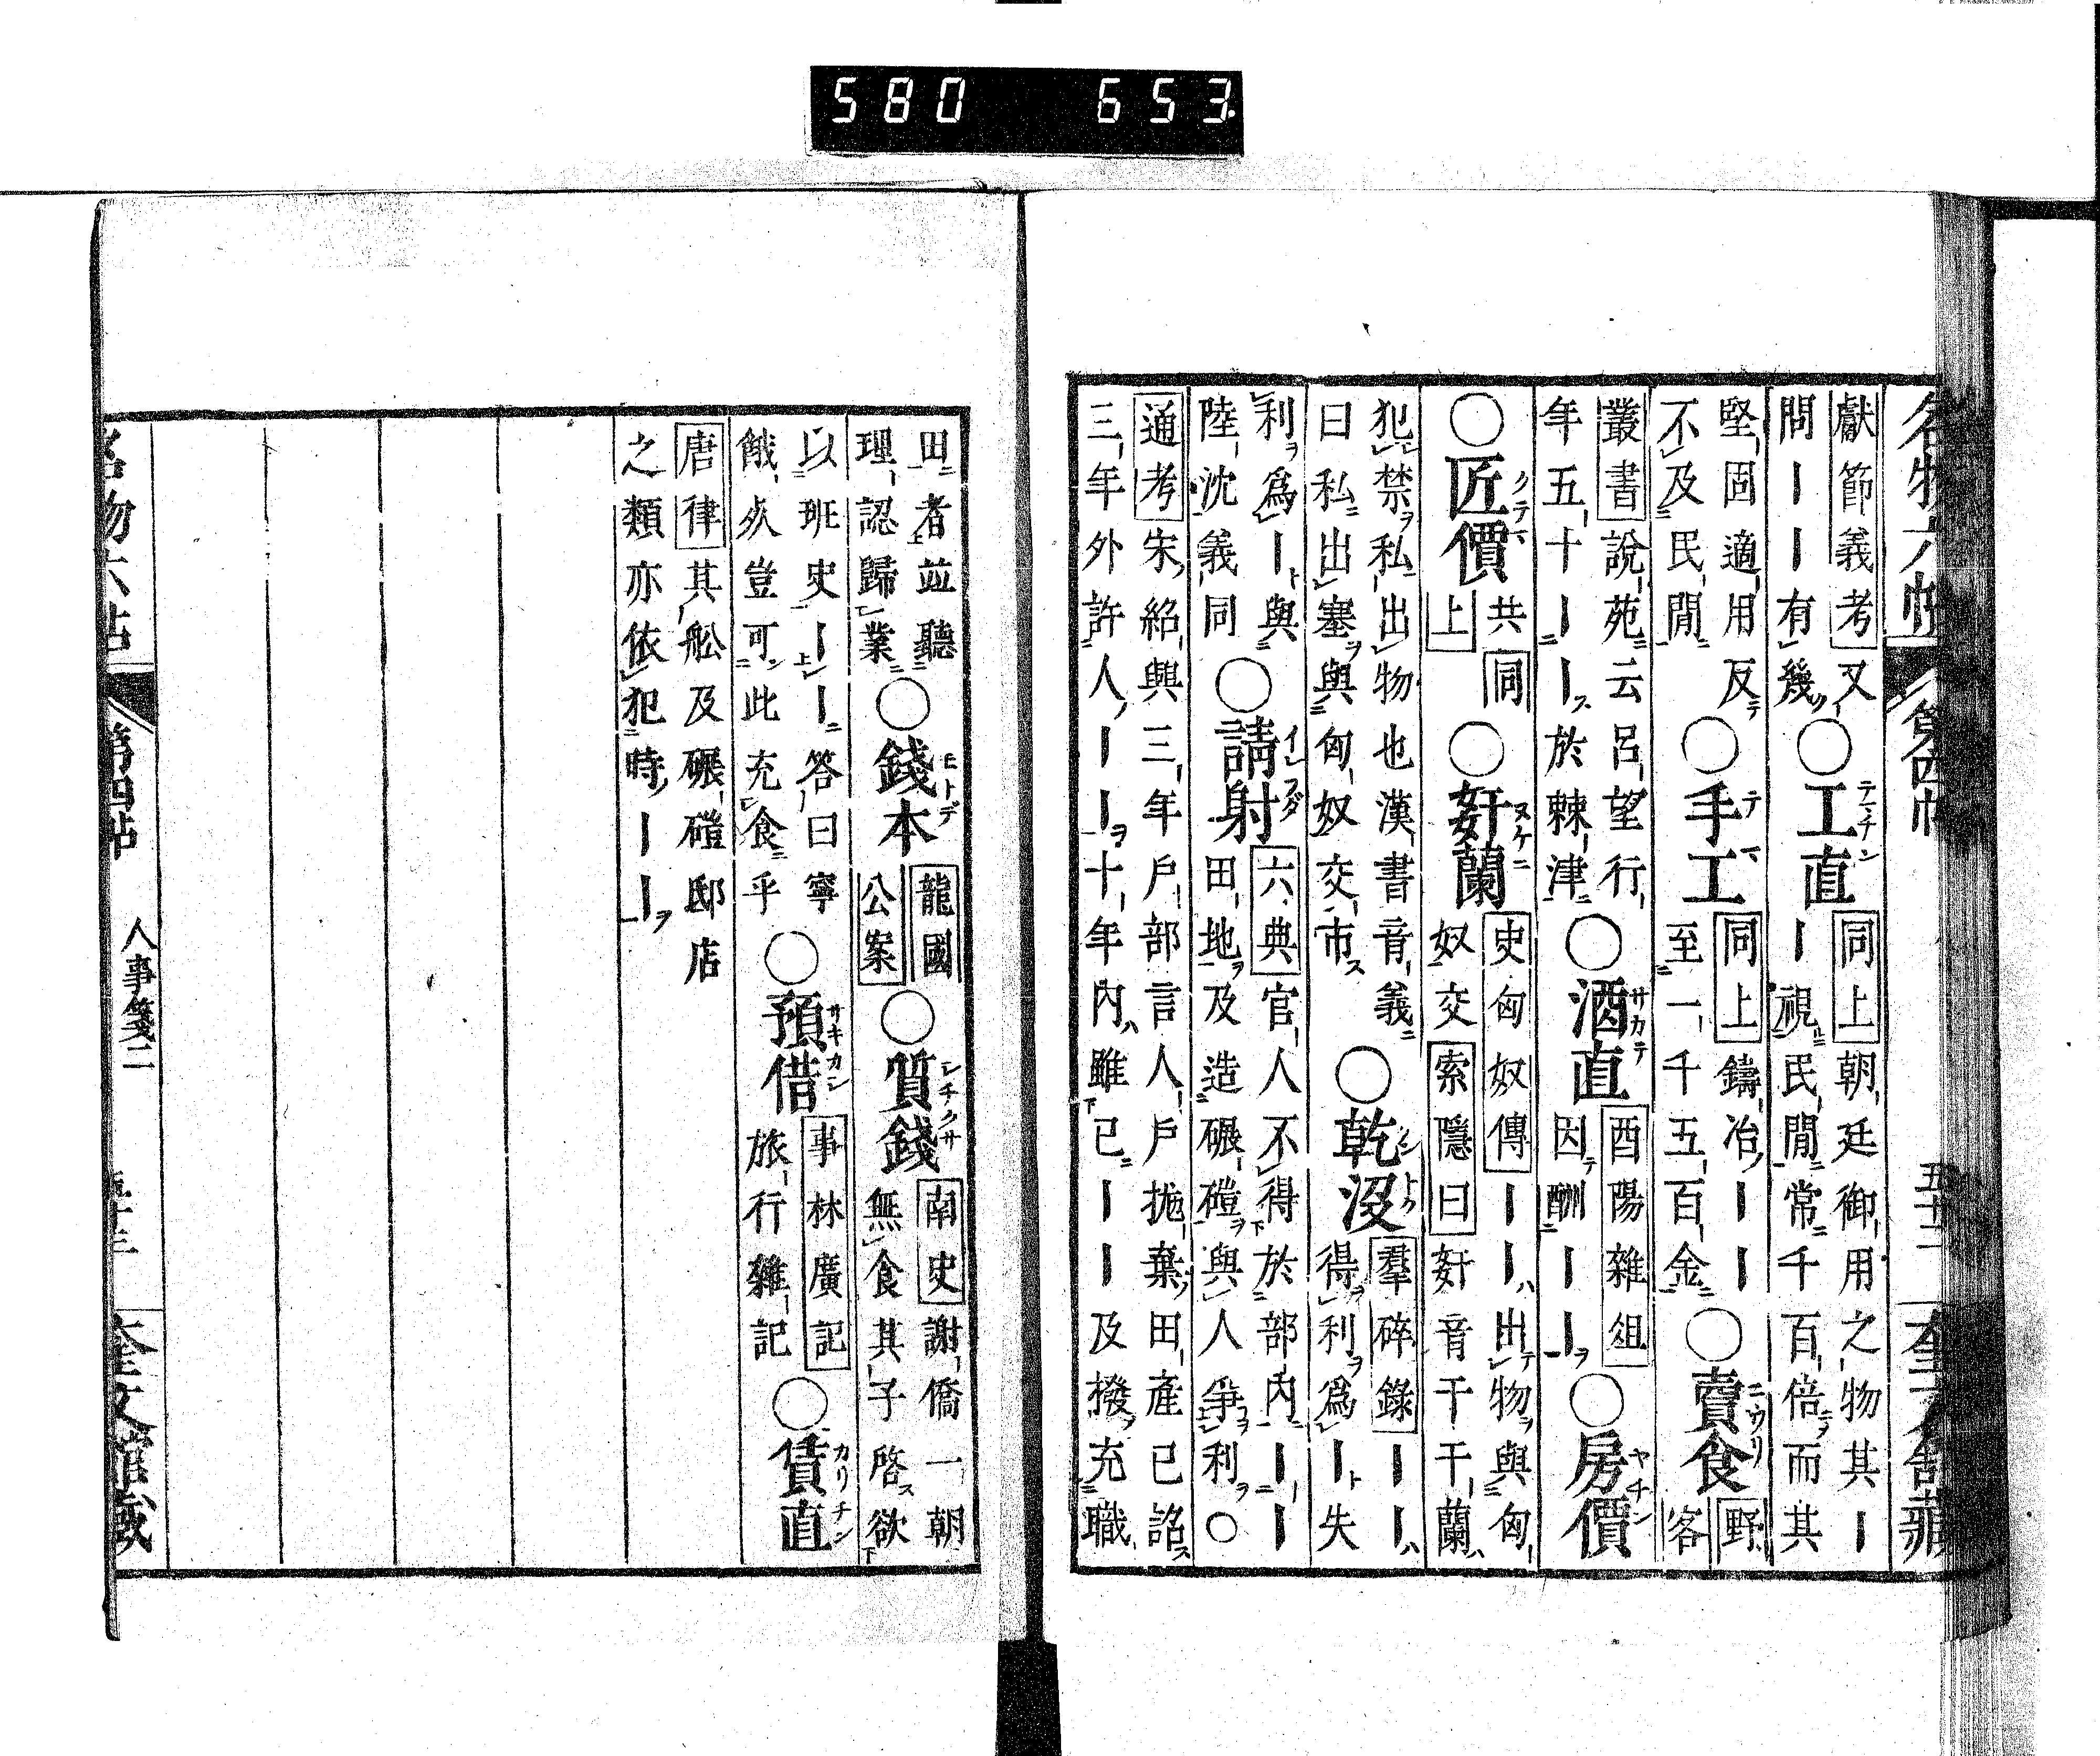 名物六帖 第四帖 五十二 奎文館藏
獻節義考又
問｜｜有幾
○工直 テマチン
同上朝廷御用之物其｜
｜視民間常千百倍而其
堅固適用反
不及民間
○手工 テマ
同上鑄冶｜｜
至一千五百金
○賣食 ニウリ
野
客
叢書說苑云呂望行
年五十｜｜於棘津
○酒直 サカテ
酉陽雜俎
因酬｜｜
○房價 ヤチン
○匠價
共同
上
○奸蘭 ヌケニ
史匈奴傳｜｜出物與匈
奴交索隱曰奸音干干蘭
犯禁私出物也漢書音義
曰私出塞與匈奴交市
○乾沒
羣碎錄｜｜
得利爲｜失
利爲｜與
陸沈義同
○請射
六典官人不得於部內｜｜
田地及造碾磑與人爭利○
通考宋紹興三年戶部言人戶拋棄田產已詔
三年外許人｜｜十年內雖已｜｜及撥充職
田者並聽
理認歸業
○錢本 モトデ
龍圖
公案
○質錢 シチクサ
南史謝僑一朝
無食其子啓欲
以班史｜｜答曰寧
餓死豈可此充食乎
○預借 サキカシ
事林廣記
旅行雜記
○賃直 カリチン
唐律其舩及碾磑邸店
之類亦依犯時｜｜
名物六帖 第四帖 人事箋二 五十三 奎文館藏
580 653